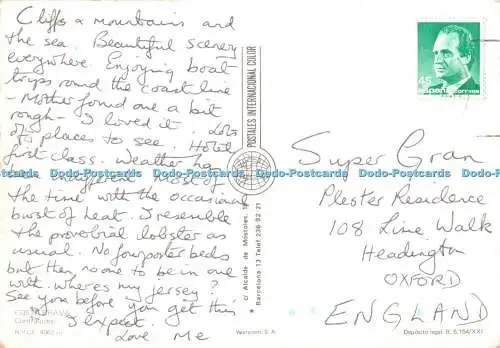 Cliffs & mountains and
the sea. Beautiful scenery
everywhere. Enjoying boat
trips round the coast line
- Mother found one a bit
rough - I loved it. Lots
of places to see. Hotel
first class. Weather has
been indifferent most of
the time with the occasional
burst of heat. I resemble
the proverbial lobster as
usual. No fourposter beds
but then no one to be in one
with. Where's my jersey?
See you before you get this
I expect.
Love Me
POSTALES INTERNACIONAL COLOR
c/ Alcalde de Mostoles,
Barcelona 13 Telef. 236 82 21
45
España correos
Super Gran
Plester Residence
108 Lime Walk
Headington
OXFORD
ENGLAND
COSTA BRAVA
Vestecom S. A.
Depósito legal B. 5.154/XXI
Dodo-Postcards.com